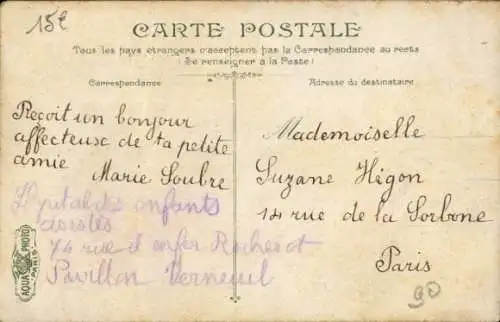 15€
CARTE POSTALE
Tous les pays étrangers n'acceptent pas la Correspondance au recto
(Se renseigner à la Poste)
Correspondance
Adresse du destinataire
Reçoit un bonjour
affecteuse de ta petite
amie
Marie Soubre
Hpital des enfants
assistés
74 rue d enfer Rocherot
Pavillon Verneuil
Mademoiselle
Suzane Higon
14 rue de la Sorbone
Paris
90
AQUA PHOTO
PARIS